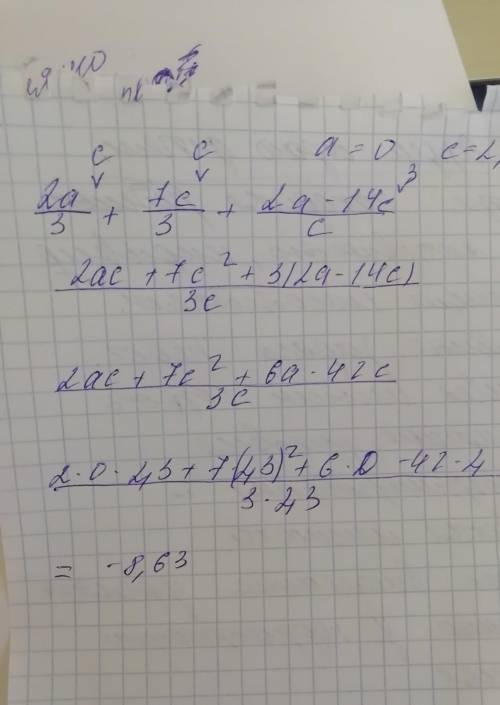 c c a = 0 c = 2,
2a/3 + 7c/3 + 2a - 14c/c 3
2ac + 7c² + 3(2a - 14c)/3c
2ac + 7c² + 6a - 42c/3c
2 · 0 · 4,3 + 7(4,3)² + 6 · 0 - 42 · 4/3 · 4,3
= -8,63